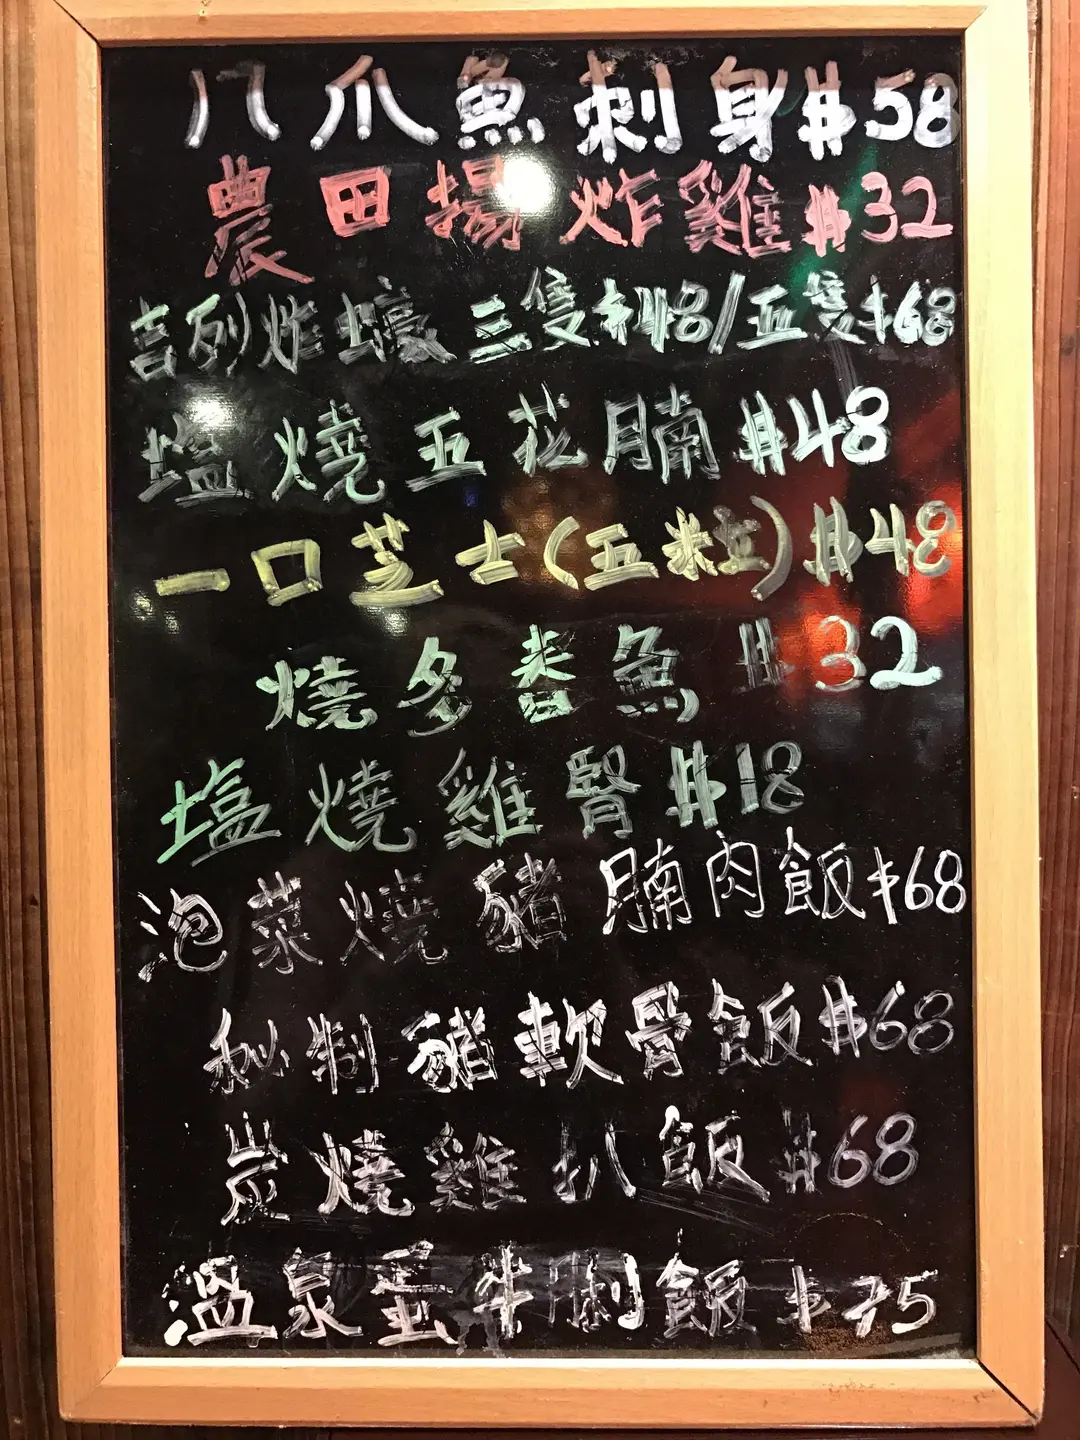 八爪魚刺身$58
農田揚炸雞$32
吉列炸蠔 三隻$48/五隻$68
塩燒五花腩$48
一口芝士(五粒)$48
燒多春魚 $32
塩燒雞腎$18
泡菜燒豬腩肉飯$68
秘制豬軟骨飯$68
炭燒雞扒飯$68
溫泉蛋牛脷飯$75